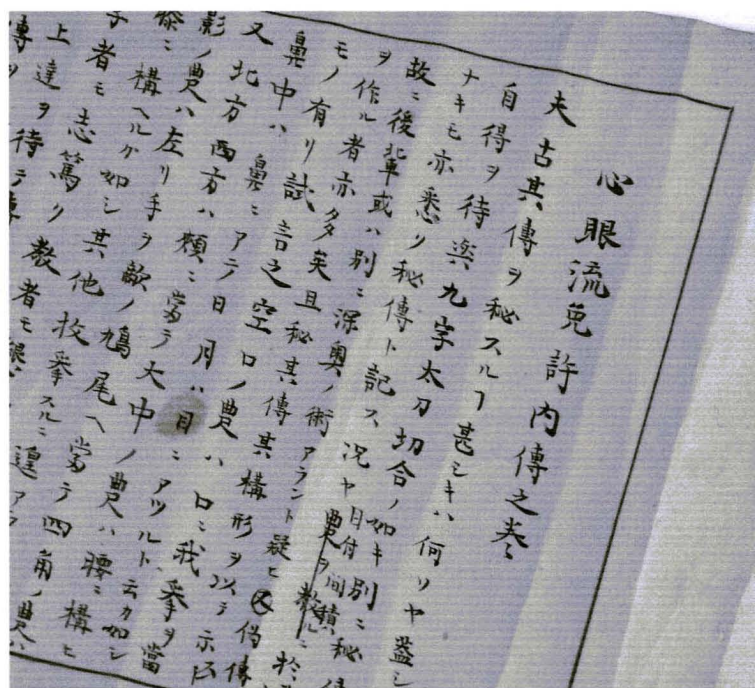 心眼流免許内傳之巻
夫古其傳ヲ秘スルヿ甚シキハ何リヤ蓋シ
自得ヲ待與九字太刀切合ノ如キ別ニ秘傳
ナキモ亦悉リ秘傳ト記ス況ヤ目付間積農ヲ教ルニ於
故ニ後輩或ハ別ニ深奥ノ術アラント疑ヒ又偽傳
ヲ作ル者亦多矣且秘其傳其構形ヲ以テ示
モノ有リ試言之空口ノ農ハ口ニ我拳ヲ當
鼻中ハ鼻ニアテ日月ハ目ニアツルト云カ如シ
又北方西方ハ頬ニ當テ大中ノ農ハ腰ニ構ヒ
影ノ農ハ左リ手ヲ敵ノ鳩尾ヘ當テ四角ノ農ハ
膝ニ構ヘルガ如シ其他枚拳スルニ遑アラ
者モ志篤ク教者モ懇
上達ヲ待テ
傳ヲ